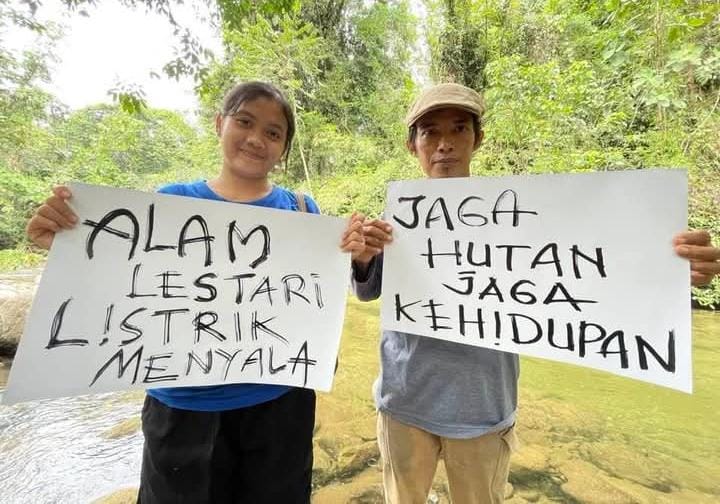 ALAM
LESTARI
L!STRIK
MENYALA
JAGA
HUTAN
JAGA
KEH!DUPAN